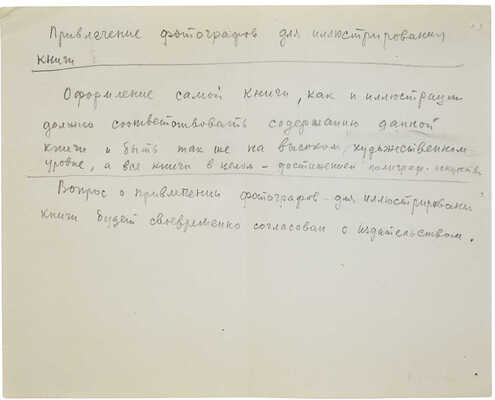 Привлечение фотографов для иллюстрирования
книги
Оформление самой книги, как и иллюстрации
должно соответствовать содержанию данной
книги и быть так же на высоком художественном
уровне, а вся книга в целом – достижением полиграф. искусства
Вопрос о привлечении фотографов для иллюстрирования
книги будет своевременно согласован с издательством.